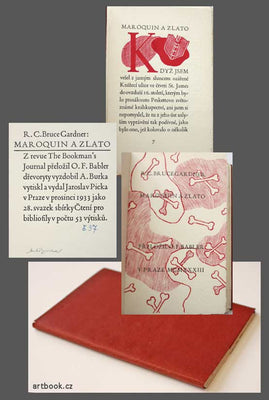 MAROQUIN A ZLATO
KDYŽ JSEM
vešel z jasným sluncem ozářené
Knižní ulice ve čtvrti St. James
do ovzduší 16. století, kterým by-
lo prosáknuto Penkettovo světo-
známé knihkupectví, ani jsem si
nepomyslil, že tu z jeho úst usly-
ším vyprávění tak podivné, jako
bylo ono, jež kolovalo o několik
7
R. C. Bruce Gardner:
MAROQUIN A ZLATO
Z revue The Bookman's
Journal přeložil O. F. Babler
dřevoryty vyzdobil A. Burka
vytiskl a vydal Jaroslav Picka
v Praze v prosinci 1933 jako
28. svazek sbírky Čtení pro
bibliofily v počtu 53 výtisků.
R.C. BRUCE GARDNER
MAROQUIN A ZLATO
PŘELOŽIL O.F. BABLER
V PRAZE MCMXXXIII
artbook.cz